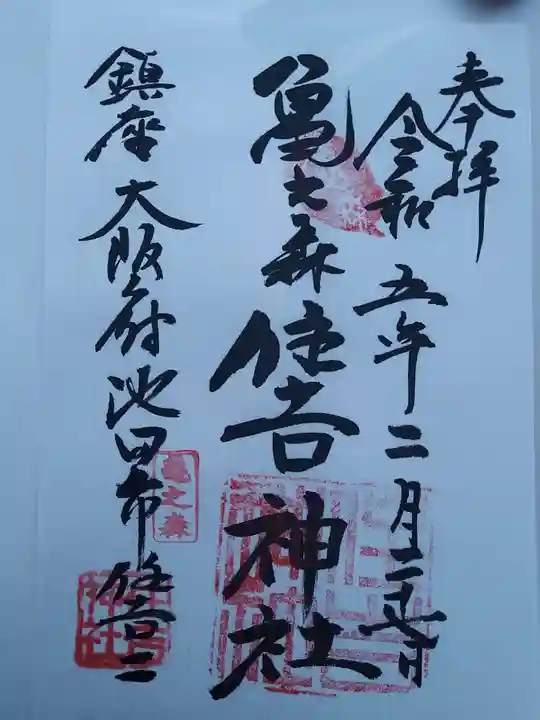 奉拝
令和五年二月二十五日
亀之森住吉神社
鎮座 大阪府池田市住吉二
亀之森